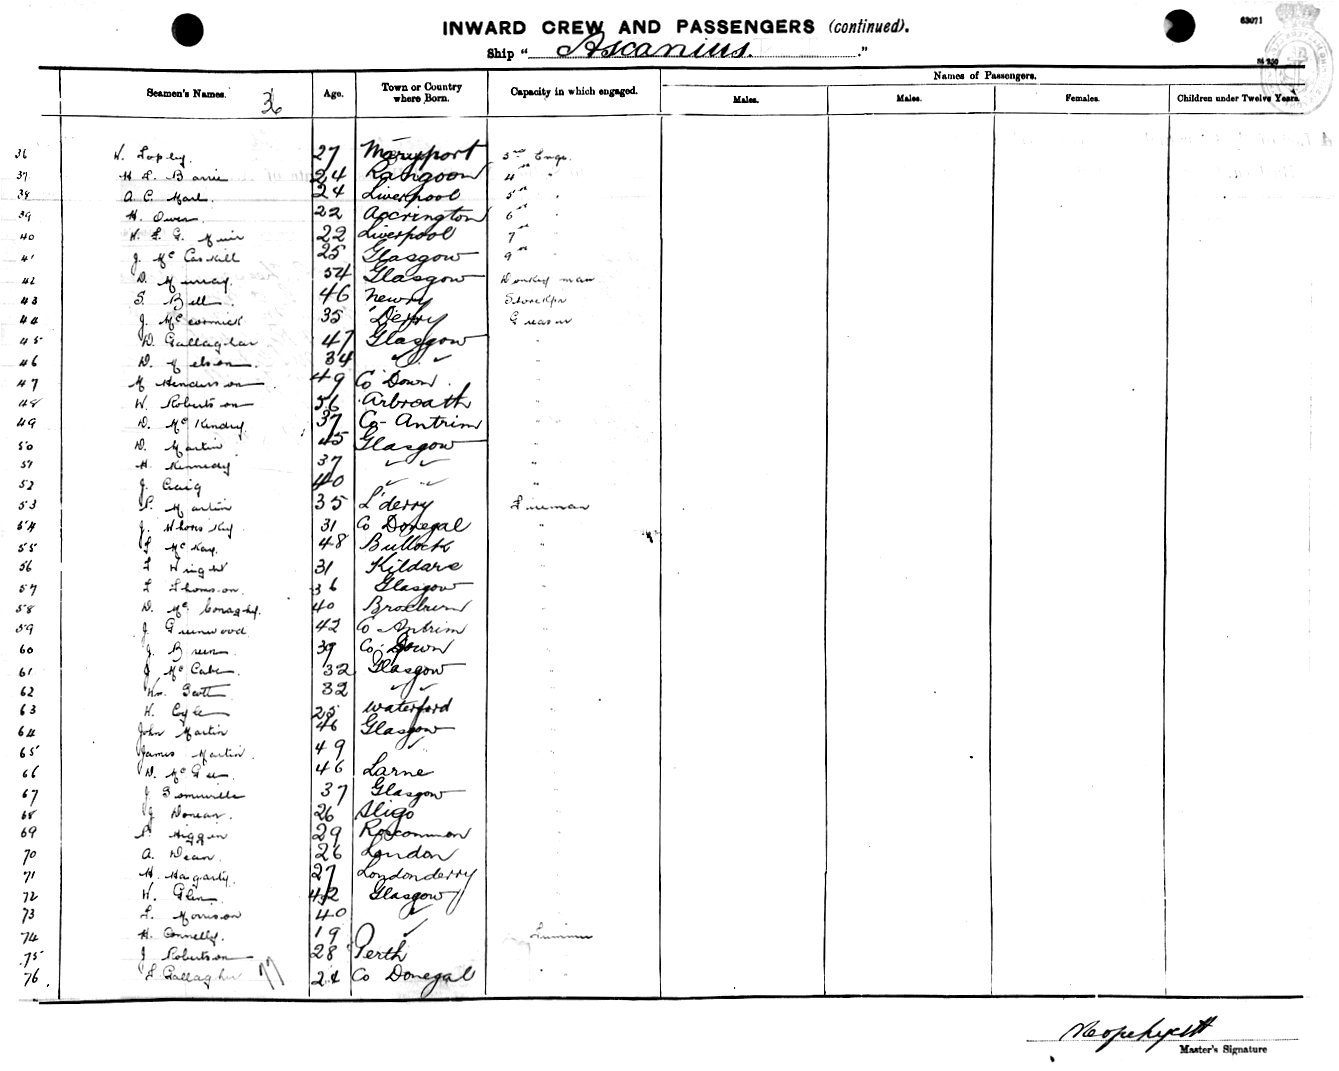 INWARD CREW AND PASSENGERS (continued).
63071
Ship " Ascanius. "
Seamen's Names. 36 Age. Town or Country where Born. Capacity in which engaged. Names of Passengers.
Males. Males. Females. Children under Twelve Years.
36 W. 27 Maryport 3rd Engr.
37 H. L. Barrie 24 Rangoon 4th "
38 A. C. 24 Liverpool 5th "
39 H. Owen. 22 Accrington 6th "
40 W. F. G. Muir 22 Liverpool 7th "
41 J. McCaskill 25 Glasgow 9th "
42 D. Murray. 54 Glasgow Donkeyman
43 S. Bell. 46 Newry Storekpr
44 J. McCormick 35 'Derry Greaser
45 D. Gallagher 47 Glasgow "
46 D. Nelson. 34 " " "
47 M Henderson 49 Co Down. "
48 W. Robertson 56 Arbroath "
49 D. McKendry. 37 Co- Antrim "
50 D. Martin 45 Glasgow "
51 H. Kennedy 37 " " "
52 J. Craig 40 " " "
53 P. Martin 35 L'derry Fireman
54 J. 31 Co Donegal "
55 McKay. 48 Bullock "
56 Wright 31 Kildare "
57 Thomson. 36 Glasgow "
58 D. McConaghy. 40 Broxburn "
59 J. Greenwood 42 Co Antrim "
60 J. Breen. 39 Co. Down "
61 J McCabe. 32 Glasgow "
62 Wm. Scott 32 " " "
63 H. Coyle 25 Waterford "
64 John Martin 46 Glasgow "
65 James Martin. 49 " "
66 D. McGee. 46 Larne "
67 J Somerville 37 Glasgow "
68 J 26 Sligo "
69 P. Higgin 29 Roscommon "
70 A. Dean. 26 London "
71 H. Hagarty. 27 Londonderry "
72 W. Glen. 42 Glasgow "
73 Morrison 40 " "
74 H. Connelly. 19 " Trimmer
75 J Robertson 28 Perth "
76. Gallagher 77 24 Co Donegal "
Master's Signature